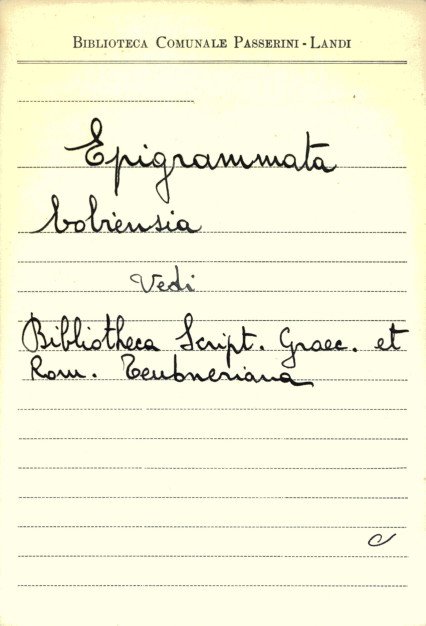 BIBLIOTECA COMUNALE PASSERINI - LANDI
Epigrammata
bobiensia
Vedi
Bibliotheca Script. Graec. et
Rom. Teubneriana